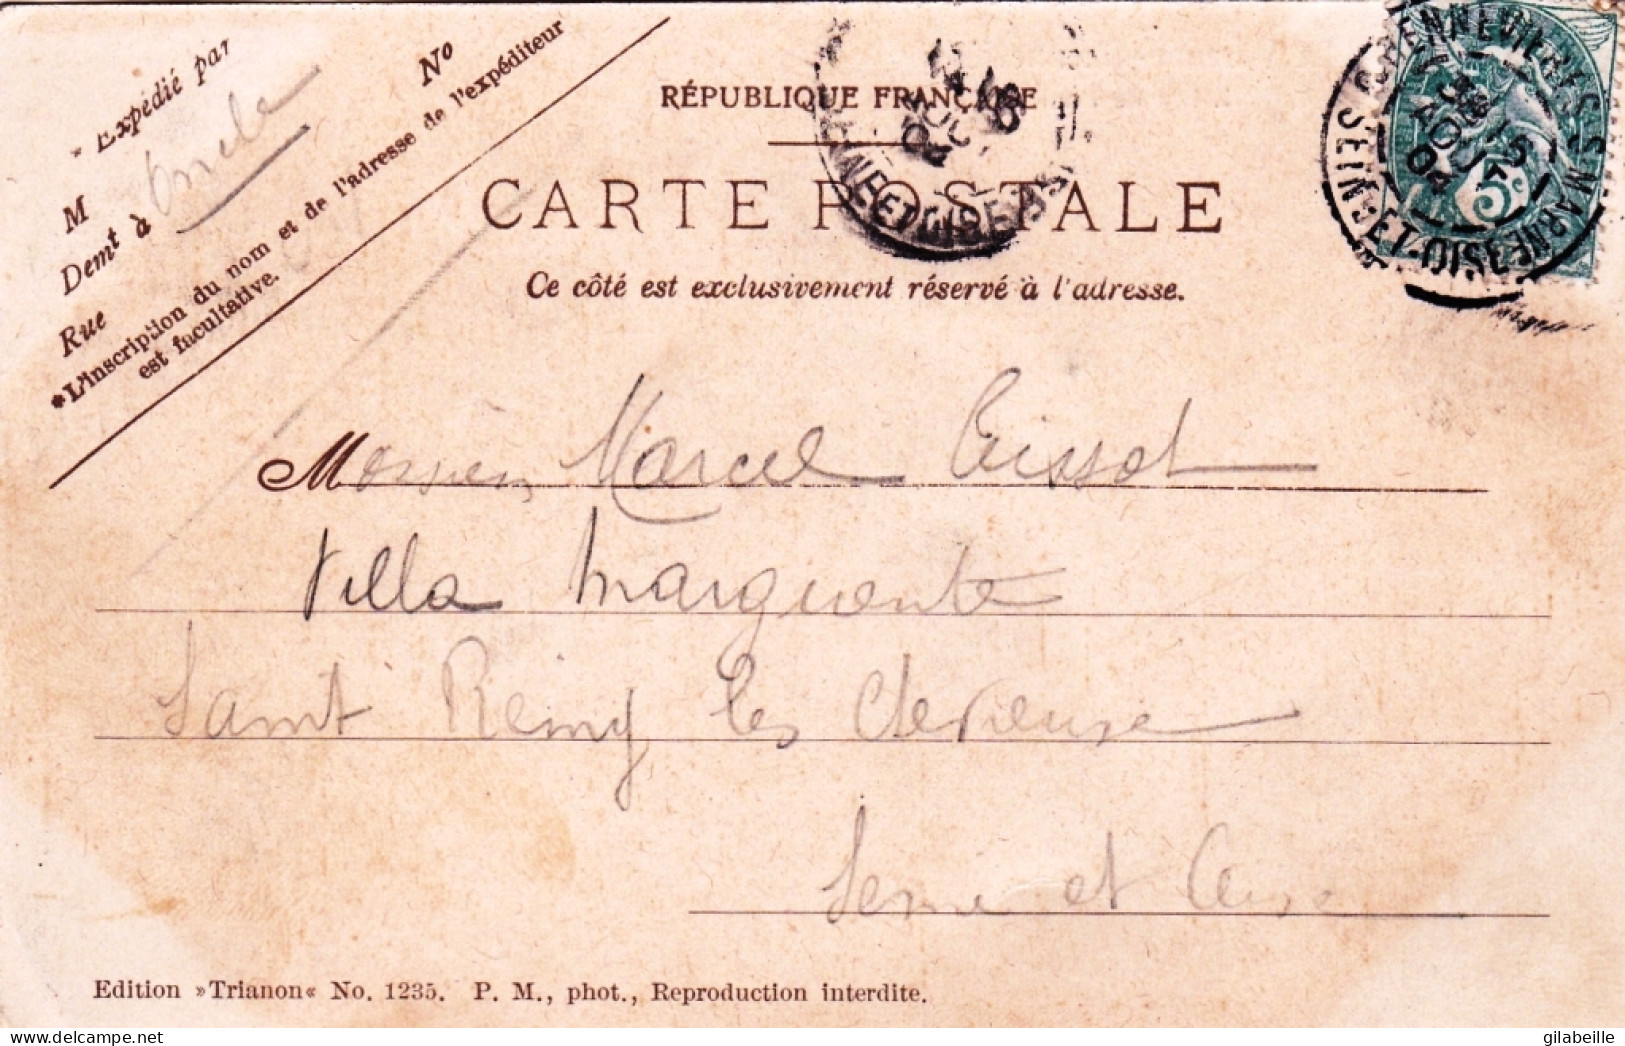 * Expédié par
Oncle
M
Demt à
Rue
No
*L'inscription du nom et de l'adresse de l'expéditeur
est facultative.
RÉPUBLIQUE FRANÇAISE
CARTE POSTALE
Ce côté est exclusivement réservé à l'adresse.
CHENNEVIERES S MARNE
SEINE-ET-OISE
AOUT
04
5c
SEINE ET OISE
Monsieur Marcel
Villa Marguerite
Saint Remy les Chevreuse
Seine et Oise
Edition »Trianon« No. 1235. P. M., phot., Reproduction interdite.
delcampe.net
gilabeille